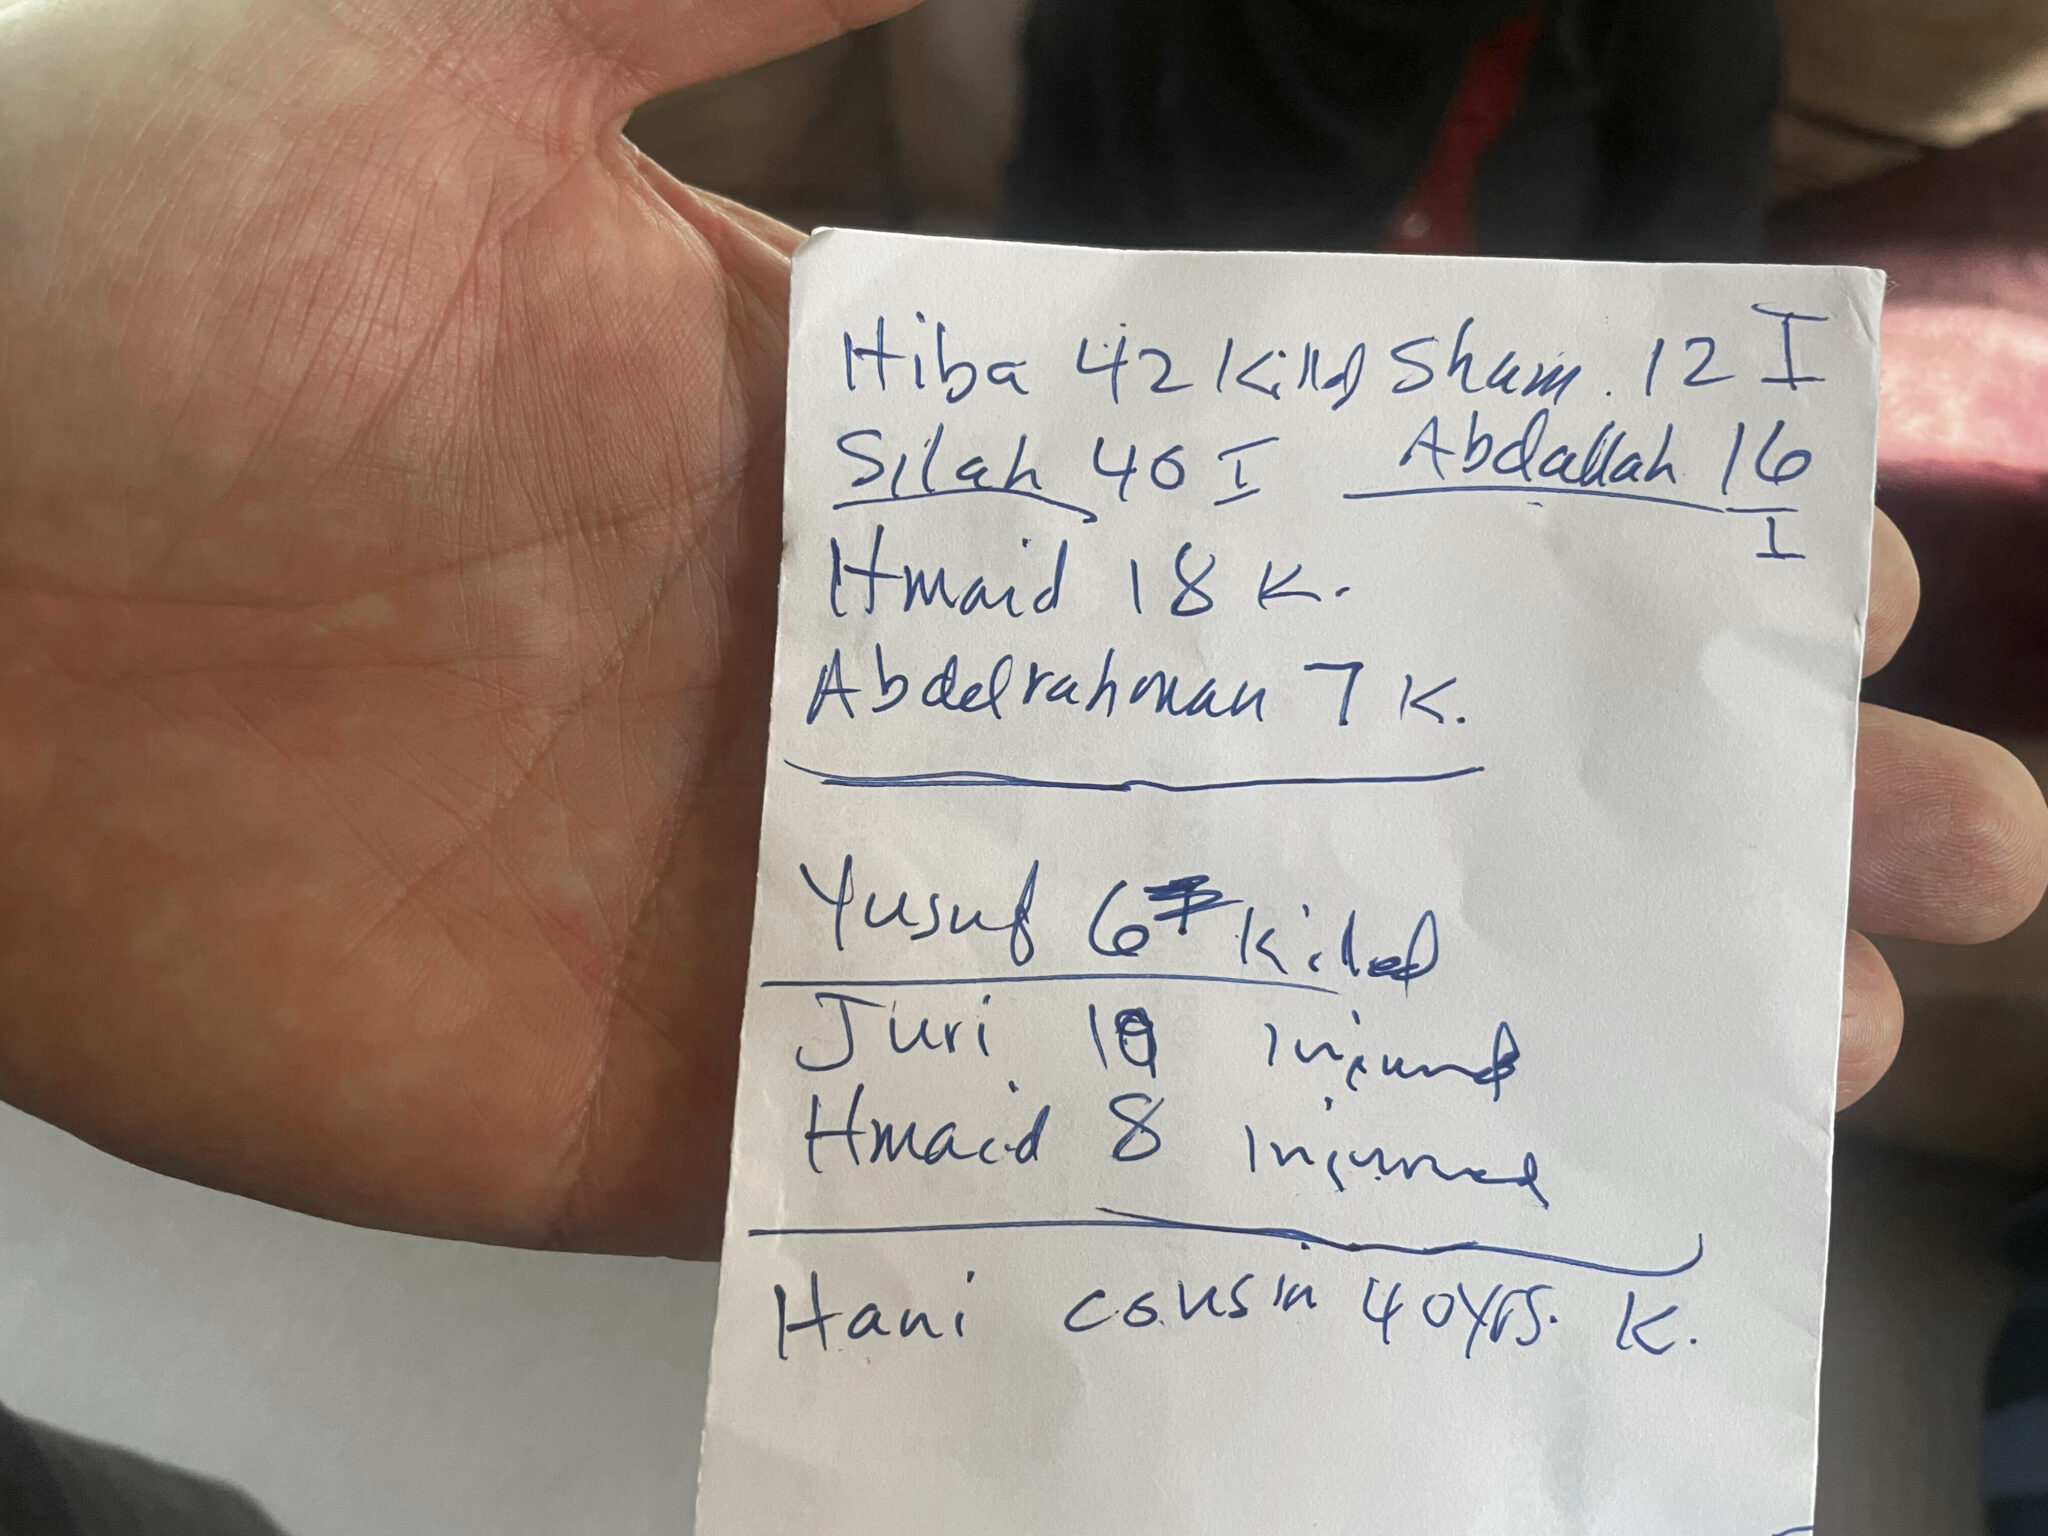 Hiba 42 Killed Sham. 12 I
Silah 40 I Abdallah 16
I
Hmaid 18 K.
Abdelrahman 7 K.
Yusuf 6 Killed
Juri injured
Hmaid 8 injured
Hani cousin 40 yrs. K.